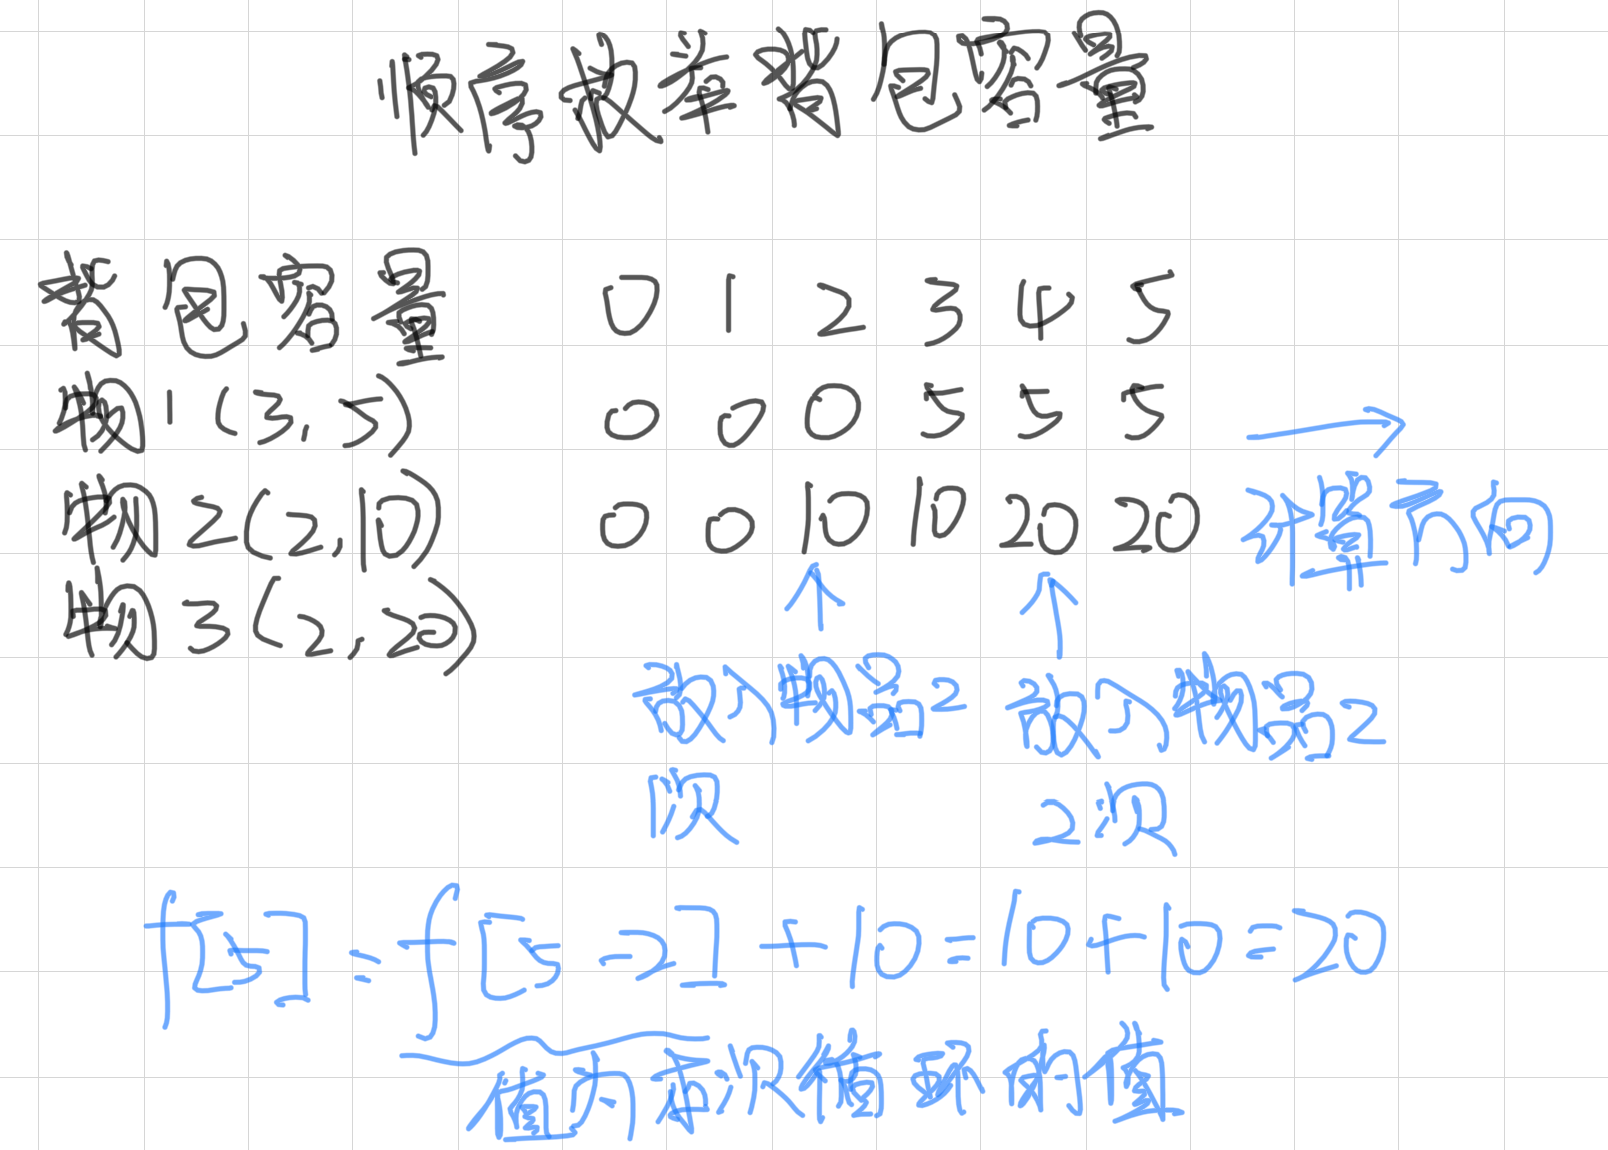 顺序枚举背包容量
背包容量 0 1 2 3 4 5
物1(3,5) 0 0 0 5 5 5
物2(2,10) 0 0 10 10 20 20 计算方向
物3(2,20)
放入物品2 放入物品2
1次 2次
f[5]=f[5-2]+10=10+10=20
值为本次循环的值